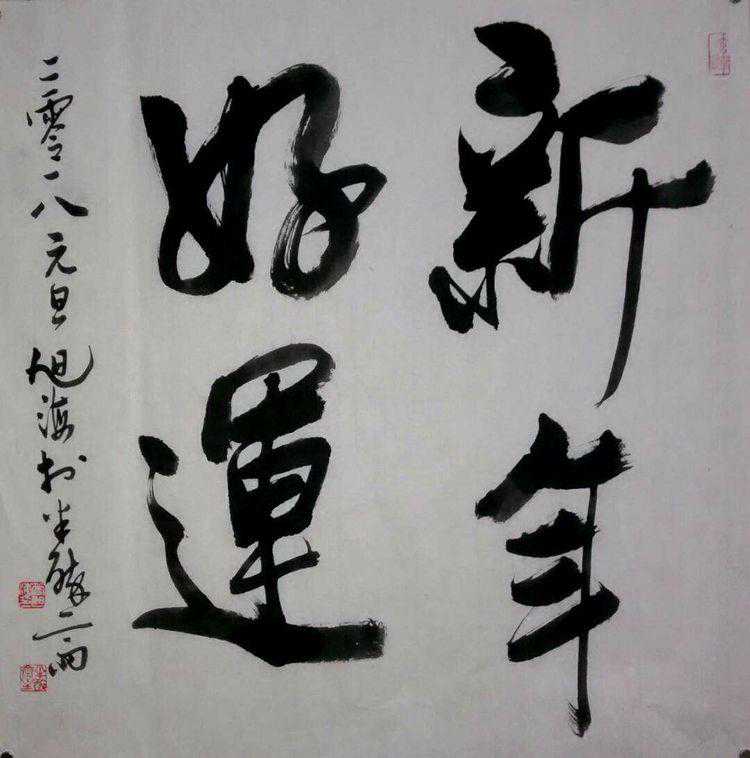 新年
好運
二零一八元旦旭海於半醉